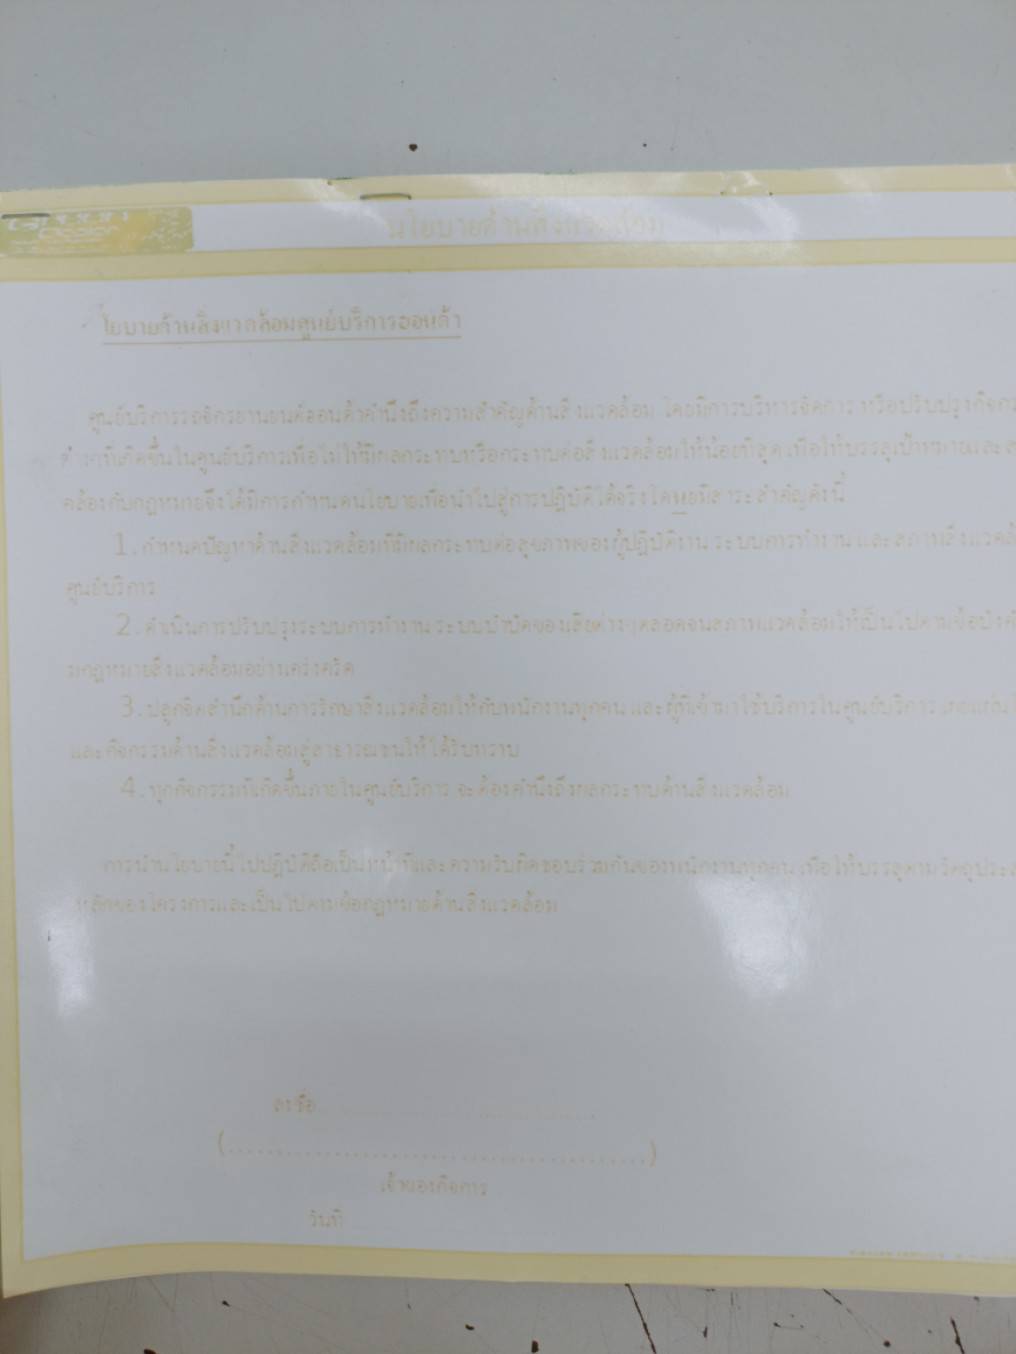 นโยบายด้านสิ่งแวดล้อม
โยบายด้านสิ่งแวดล้อมศูนย์บริการฮอนด้า
ศูนย์บริการรถจักรยานยนต์ฮอนด้าคำนึงถึงความสำคัญด้านสิ่งแวดล้อม โดยมีการบริหารจัดการ หรือปรับปรุงกิจกร
ที่เกิดขึ้นในศูนย์บริการเพื่อไม่ให้มีผลกระทบหรือกระทบต่อสิ่งแวดล้อมให้น้อยที่สุด เพื่อให้บรรลุเป้าหมายและส
คล้องกับกฎหมายจึงได้มีการกำหนดนโยบายเพื่อนำไปสู่การปฏิบัติได้จริง โดยมีสาระสำคัญดังนี้
1. กำหนดปัญหาด้านสิ่งแวดล้อมที่มีผลกระทบต่อสุขภาพของผู้ปฏิบัติงาน ระบบการทำงาน และสภาพสิ่งแวดล้
ศูนย์บริการ
2. ดำเนินการปรับปรุงระบบการทำงาน ระบบบำบัดของเสียต่างๆตลอดจนสภาพแวดล้อมให้เป็นไปตามข้อบังคั
มกฎหมายสิ่งแวดล้อมอย่างเคร่งครัด
3. ปลูกจิตสำนึกด้านการรักษาสิ่งแวดล้อมให้กับพนักงานทุกคน และผู้ที่เข้ามาใช้บริการในศูนย์บริการ
และกิจกรรมด้านสิ่งแวดล้อมสู่สาธารณชนให้ได้รับทราบ
4. ทุกกิจกรรมที่เกิดขึ้นภายในศูนย์บริการ จะต้องคำนึงถึงผลกระทบด้านสิ่งแวดล้อม
การนำนโยบายนี้ไปปฏิบัติถือเป็นหน้าที่และความรับผิดชอบร่วมกันของพนักงานทุกคน เพื่อให้บรรลุตามวัตถุประส
หลักของโครงการและเป็นไปตามข้อกฎหมายด้านสิ่งแวดล้อม
ลงชื่อ..............................................
(..............................................)
เจ้าของกิจการ
วันที่